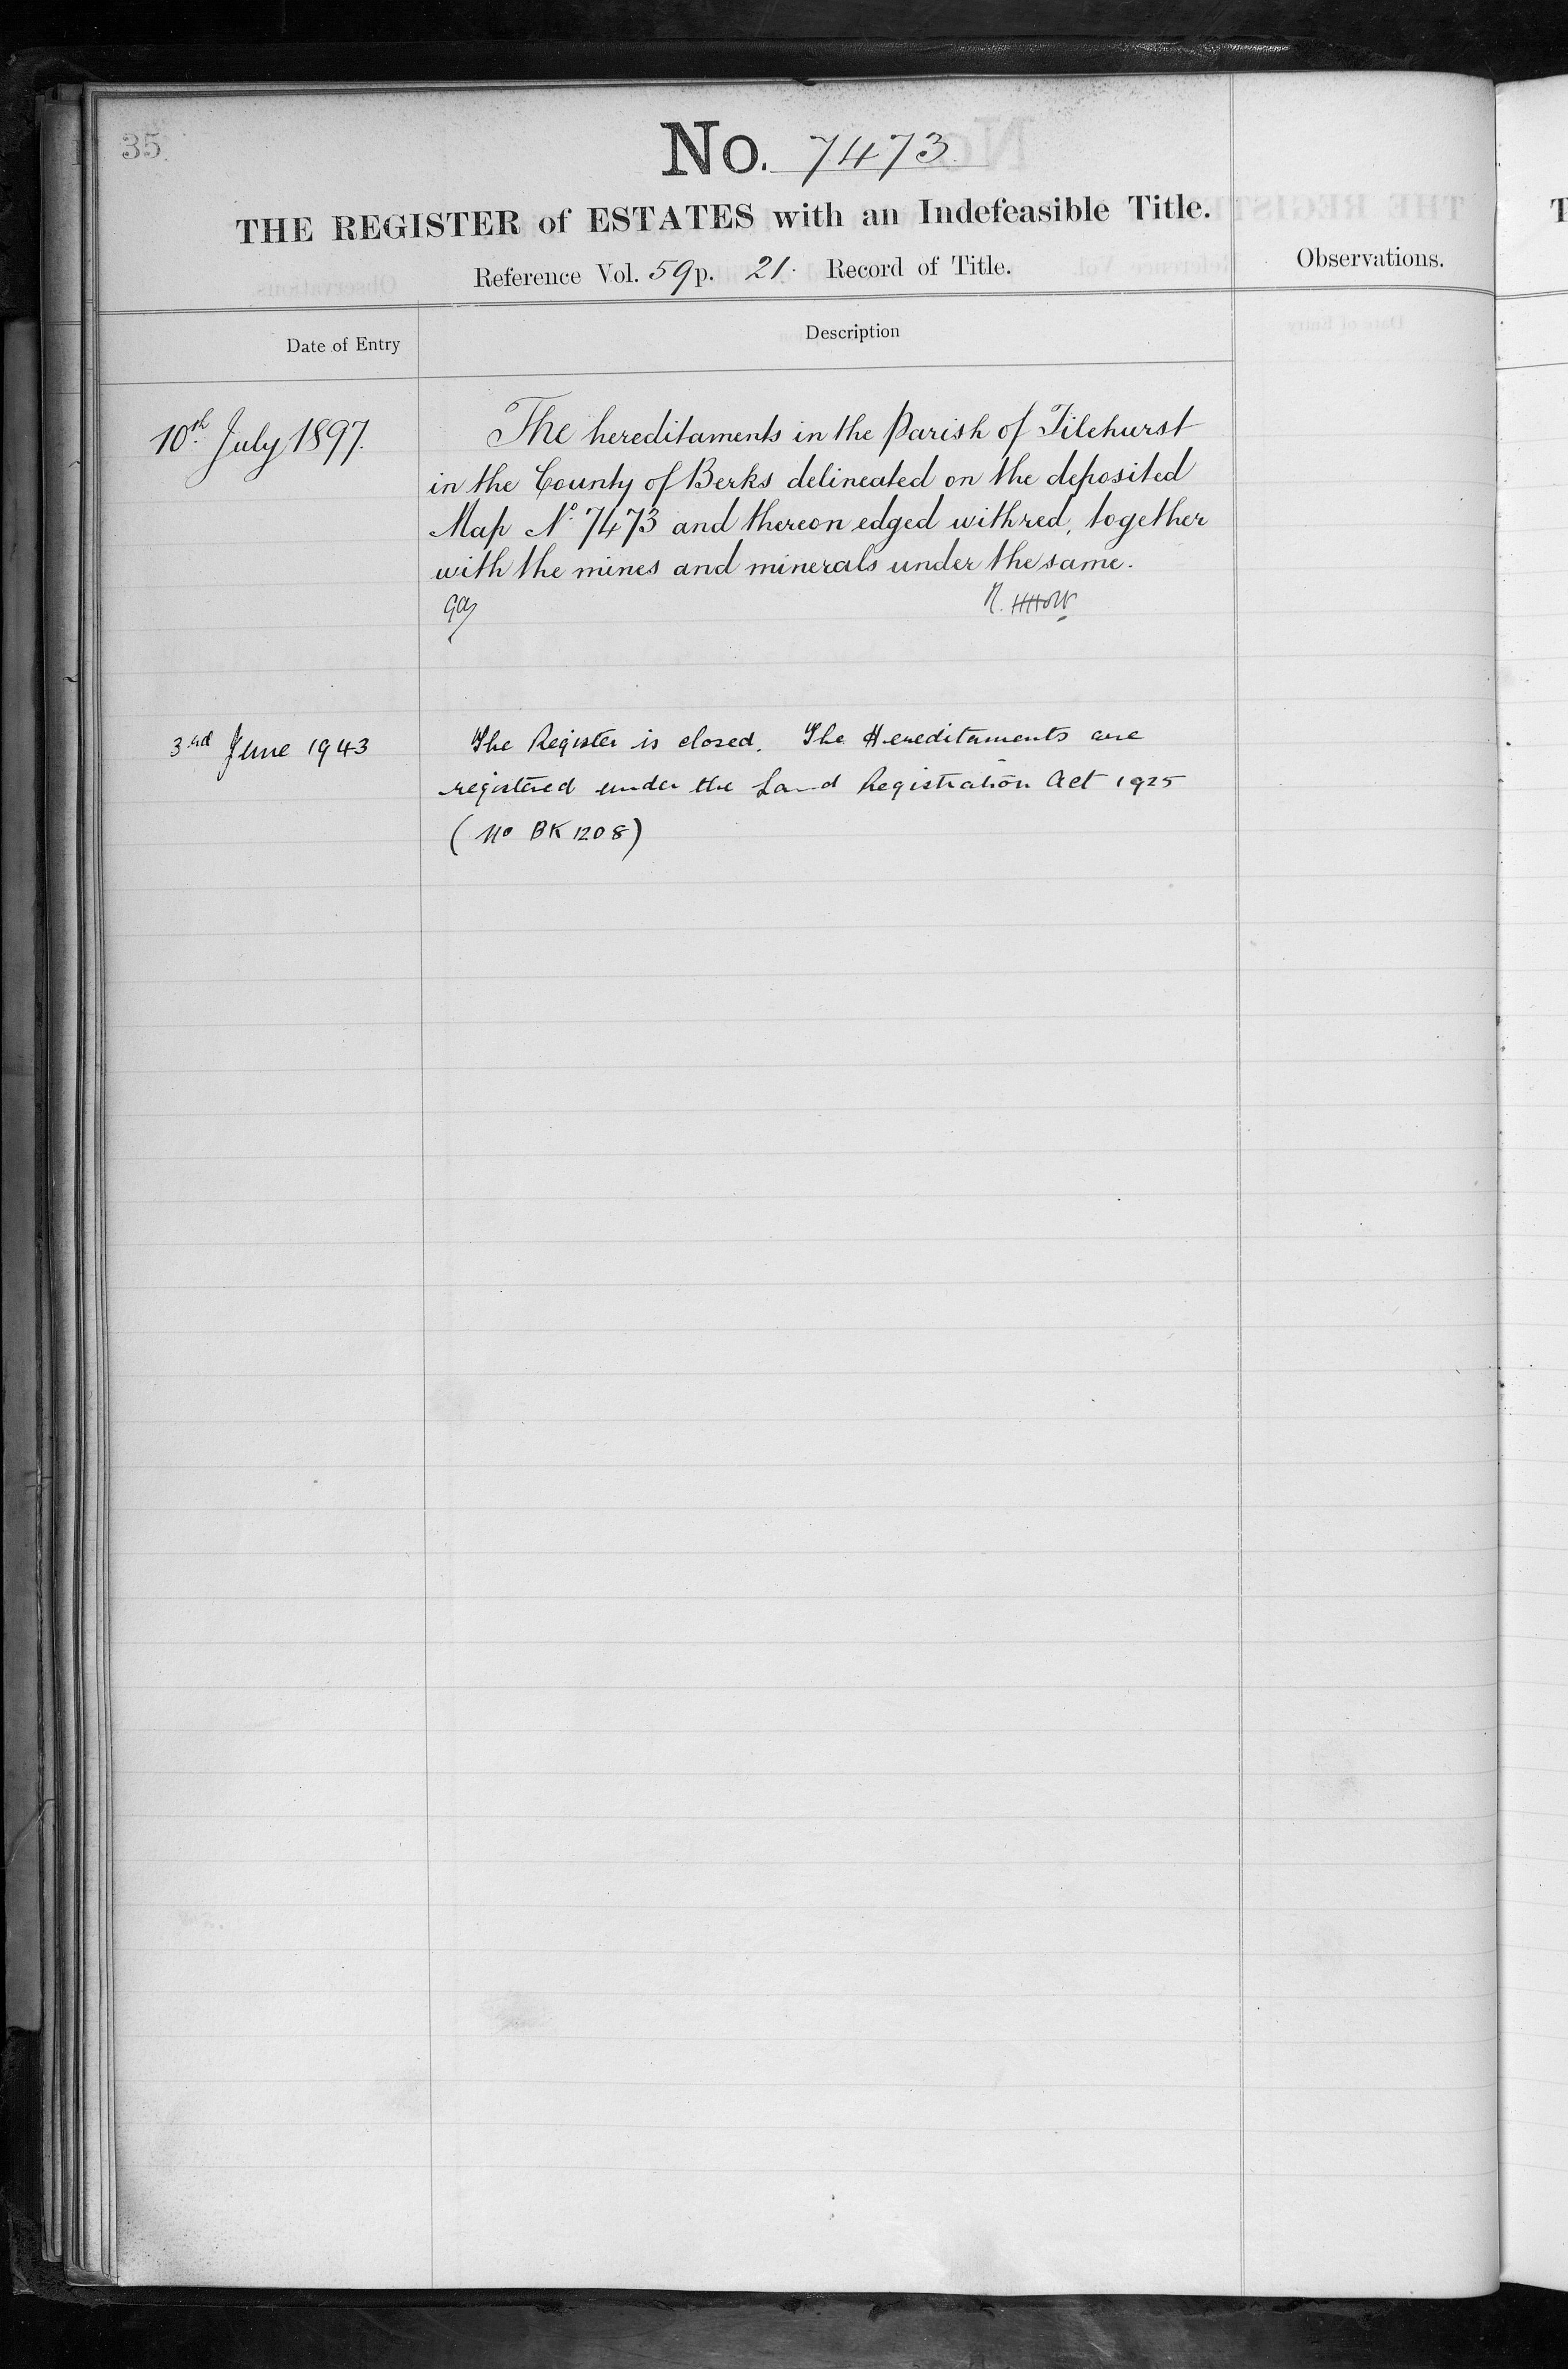 35
No. 7473
THE REGISTER of ESTATES with an Indefeasible Title.
Reference Vol. 59 p. 21. Record of Title.
Observations.
Date of Entry
Description
10th July 1897.
The hereditaments in the Parish of Tilehurst
in the County of Berks delineated on the deposited
Map No. 7473 and thereon edged with red, together
with the mines and minerals under the same.
3rd June 1943
The Register is closed. The Hereditaments are
registered under the Land Registration Act 1925
(No BK 1208)